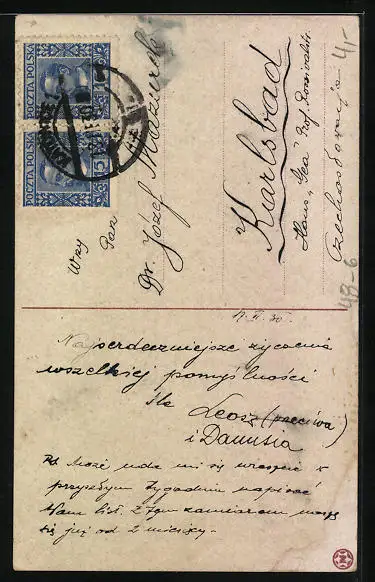 POCZTA POLSKA
POCZTA POLSKA
Wny
Pan
Dr. Józef Mazurek
Karlsbad
Haus „Gea" Prof.
Czechosłowacja
41-
48-6
Najserdeczniejsze życzenia
wszelkiej pomyślności
śle
Leosz (
i Danusia
Ps. Może uda mi się wreszcie w
przyszłym tygodniu napisać
Wam list. Z tym zamiarem noszę
się już od 2 miesięcy.